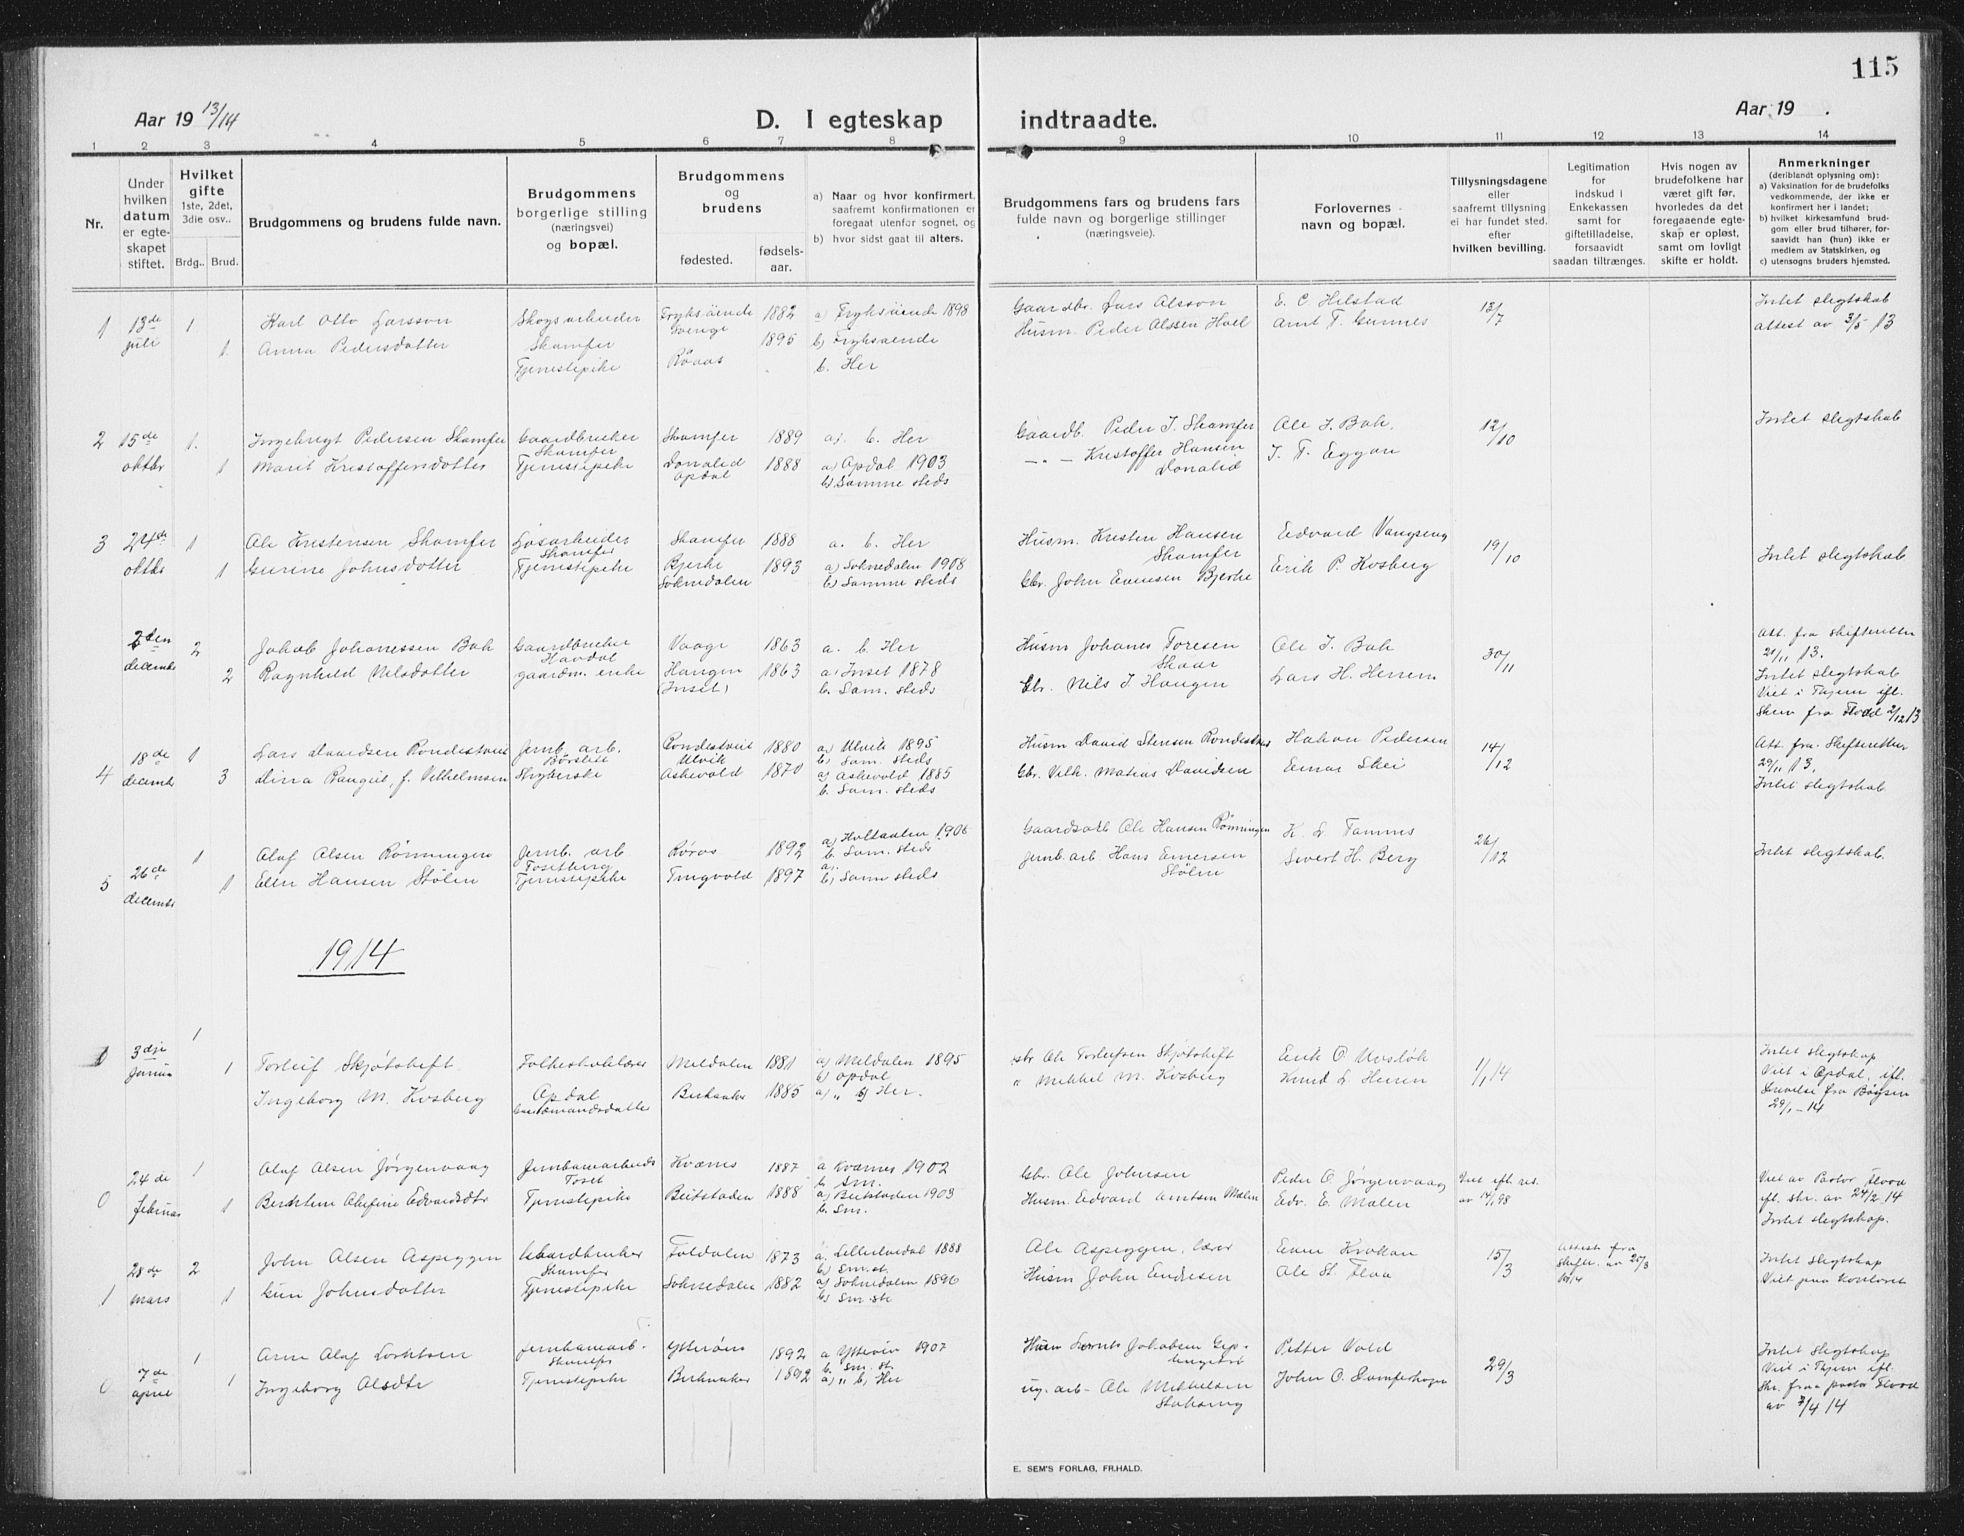 115
Aar 19 13/14
D. I egteskap indtraadte.
Aar 19 .
1 2 3 4 5 6 7 8 9 10 11 12 13 14
Nr.
Under hvilken datum er egteskapet stiftet.
Hvilket gifte 1ste, 2det, 3die osv..
Brdg.. Brud.
Brudgommens og brudens fulde navn.
Brudgommens borgerlige stilling (næringsvei) og bopæl.
Brudgommens og brudens
fødested.
fødsels-aar.
a) Naar og hvor konfirmert, saafremt konfirmationen er foregaat utenfor sognet, og
b) hvor sidst gaat til alters.
Brudgommens fars og brudens fars fulde navn og borgerlige stillinger (næringsveie).
Forlovernes navn og bopæl.
Tillysningsdagene eller saafremt tillysning ei har fundet sted. efter hvilken bevilling.
Legitimation for indskud i Enkekassen samt for giftetilladelse, forsaavidt saadan tiltrænges.
Hvis nogen av brudefolkene har været gift før, hvorledes da det foregaaende egteskap er opløst, samt om lovligt skifte er holdt.
Anmerkninger (deriblandt oplysning om):
a) Vaksination for de brudefolks vedkommende, der ikke er konfirmert her i landet;
b) hvilket kirkesamfund brudgom eller brud tilhører, forsaavidt han (hun) ikke er medlem av Statskirken, og
c) utensogns bruders hjemsted.
1 13de juli 1 Karl Otto Larsson Skogsarbeider Skamfer Sverige 1882 1898
1 Anna Pedersdatter Tjenestepike Röaas 1895 b. Her
Gaardbr. Lars Olsson
Husm. Peder Olssen Hoel
E. C. Hilstad
Arnt T. Gunnes
13/7
Intet slegtskab
attest av 3/5 13
2 15de oktbr 1. Ingebrigt Pedersen Skamfer Gaardbruker Skamfer Skamfer 1889 a. b. Her
1 Marit Kristoffersdatter Tjenestepike Opdal 1888 a) Opdal 1903
b) Samme steds
Gaardb. Peder J. Skamfer
Kristoffer Hansen
Ole J. Bak,
J. T. Eggan
12/10
Intet slegtskab
3 24de oktbr 1 Ole Kristensen Skamfer Løsarbeider Skamfer Skamfer 1888 a. b. Her
1 Gurine Johnsdatter Tjenestepike Bjerke Soknedalen 1893 a) Soknedalen 1908
b) Samme steds
Husm. Kristen Hansen Skamfer
Gbr. John Evensen Bjerke
Edvard Vangseng
Erik P. Kosberg
19/10
Intet slegtskab
2den decembr 2 Jakob Johannessen Bak Gaardbruker Havdal Vaage 1863 a. b. Her
2 Ragnhild Nilsdatter gaardm. enke Haugen (Inset) 1863 a) Inset 1878
b. Sam. steds
Husm Johanes Toresen Skaar
Gbr. Nils J. Haugen
Ole J. Bak
Lars H. Herrem
30/11
Att. fra skifteretten
21/11 13.
Intet slegtskab
Viet i Tkjem ifl.
Skriv fra Flood 2/12 13
4 18de decembr 1 Lars Davidsen Rondestveit Jernb. arb. Børslett Rondestveit Ulvik 1880 a) Ulvik 1895
b) Sam. steds
3 Dina Raugul, f. Vilhelmsen Stryberske Askevold 1870 a) Askevold 1885
b. Sam. steds
Husm David Stensen Rondestveit
Gbr. Vilh. Matias Davidsen
Hakon Pedersen
Einar Skei
14/12
Att. fra. Skifteretten
29/11 13.
Intet slegtskab
5 26de decembr 1 Olaf Olsen Rönningen Jernb. arb Røros 1892 a) Holtaalen 1906
b. Sam. steds
1 Elen Hansen Stölen Tjenestepike Tingvold 1897 a.
b) Sam steds
Ole Hansen Rønningen
Jernb. arb Hans Einersen Stölen
K. L. Tamnes
Sivert H. Berg
26/12
Intet slegtskab.
1914
3dje Januar 1 Torleif Skjøtskift Folkeskolelærer Opdal Meldalen 1881 a) Meldalen 1895
b) Opdal
1 Ingeborg M. Kosberg Gaardmandsdatter Berkaaker 1885 a) " b) Her.
Ole Torleifsen Skjøtskift
" Mikkel M. Kosberg
Knud L. Herrem
1/1 14
Intet slegtskap
Viet i Opdal, ifl.
29/1-14
0 24de februar 1 Olaf Olsen Jørgenvaag Jernbanearbeider Toset Kværnes 1887 a Kværnes 1902
b. Sm.
1 Berntine Olefine Edvardsdtr Tjenestepike Beitstaden 1888 a) Beitstaden 1903
b. Sm.
Gbr. Ole Johnsen
Husm. Edvard Arntsen Malen
Peder O. Jørgenvaag
Edv. E. Malen
Viet efl. res.
av 14/1 98
Viet av Pastor Flood
ifl. skr. av 24/2 14
Intet slegtskap.
1 28de mars 2 John Olsen Aspeggen Gaardbruker Skamfer Foldalen 1873 a. Lilleelvedal 1888
b) Sm. st.
1 Guri Johnsdatter Tjenestepike Soknedalen 1882 a) Soknedalen 1896
b) Sm. ste
Ole Aspeggen, lærer
Husm John Endresen
Even Krokan
Ole St. Floa
15/3
Attest fra
skifter. av 25/3
1914
Intet slegtskap
Viet paa Kontoret
0 7de april 1 Arne Olaf Lorntsen Jernbanearb. Skamfer Ytterøen 1892 a Ytterøen 1907
b. Sm. st.
1 Ingeborg Olsdtr Tjenestepike Berkaaker 1892 a) " b) Her
Husm Lornts Jakobsen
Ole Mikkelsen
Petter Vold
John O. Damferhagen
29/3
Intet slegtskap
Viet i Tkjem ifl.
Skr. fraa pastor Flood
av 7/4 14
E. SEM'S FORLAG, FR.HALD.